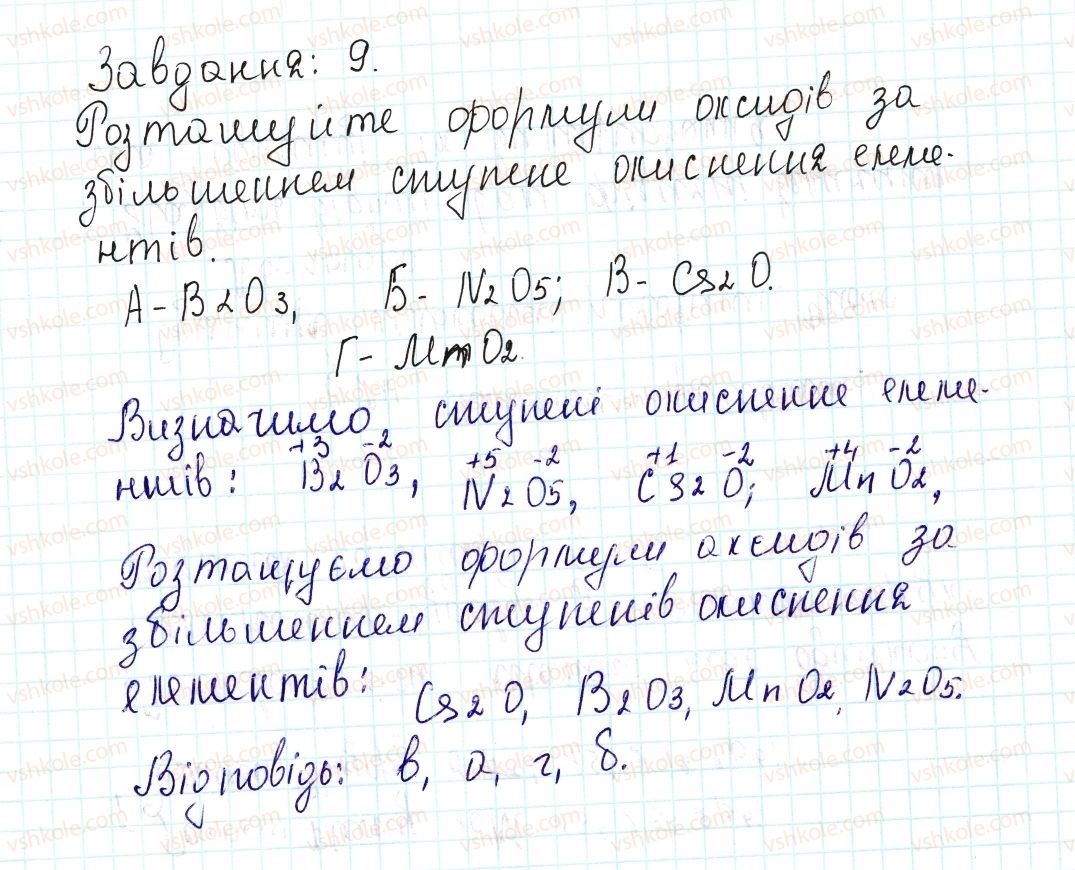 Завдання: 9.
Розташуйте формули оксидів за
збільшеннем ступене окиснення елеме-
нтів.
А - B2O3, Б - N2O5; В - Cs2O.
Г - MnO2.
Визначимо ступені окисненне елеме-
нтів: +3 -2 B2O3, +5 -2 N2O5, +1 -2 Cs2O; +4 -2 MnO2,
Розташуємо формули оксидів за
збільшеннем ступенів окиснення
елементів: Cs2O, B2O3, MnO2, N2O5.
Відповідь: в, а, г, б.